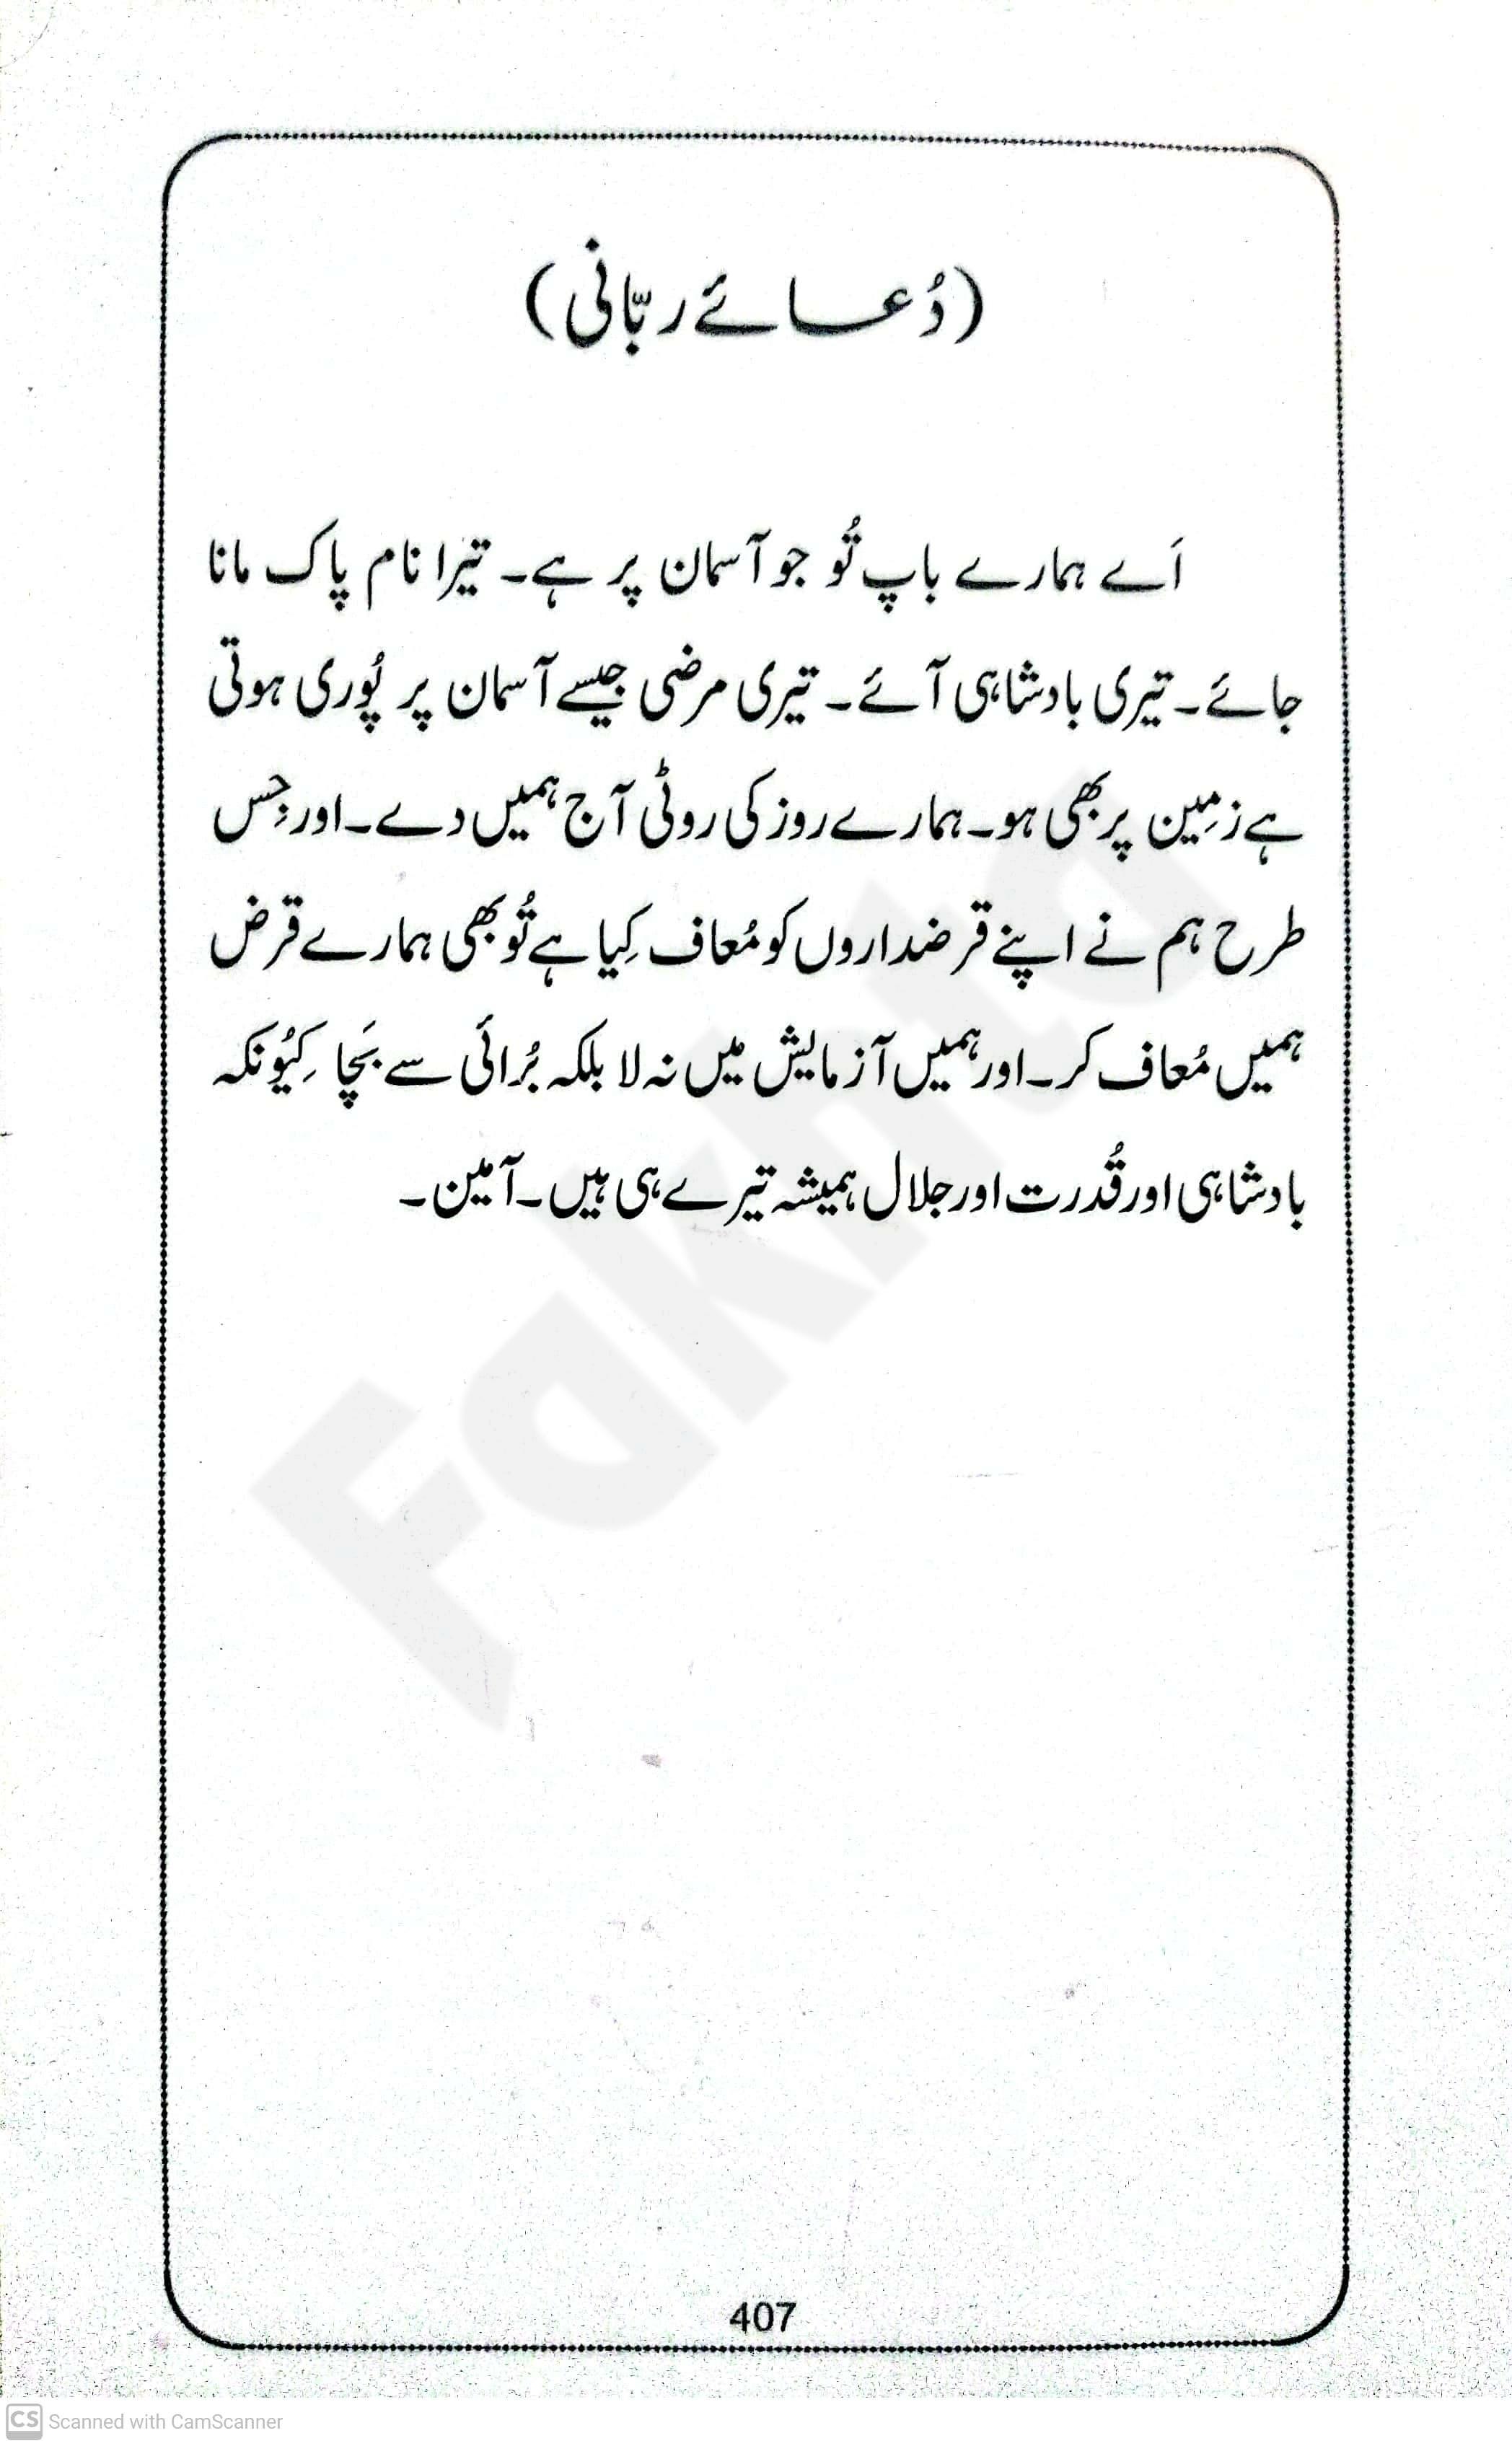 (دُعائے ربّانی)
اَے ہمارے باپ تُو جو آسمان پر ہے۔ تیرا نام پاک مانا
جائے۔ تیری بادشاہی آئے۔ تیری مرضی جیسے آسمان پر پُوری ہوتی
ہے زمِین پر بھی ہو۔ ہمارے روز کی روٹی آج ہمیں دے۔ اور جِس
طرح ہم نے اپنے قرضداروں کو مُعاف کِیا ہے تُو بھی ہمارے قرض
ہمیں مُعاف کر۔ اور ہمیں آزمایش میں نہ لا بلکہ بُرائی سے بَچا۔ کِیُونکہ
بادشاہی اور قُدرت اور جلال ہمیشہ تیرے ہی ہیں۔ آمین۔
Fakhta
407
CS Scanned with CamScanner